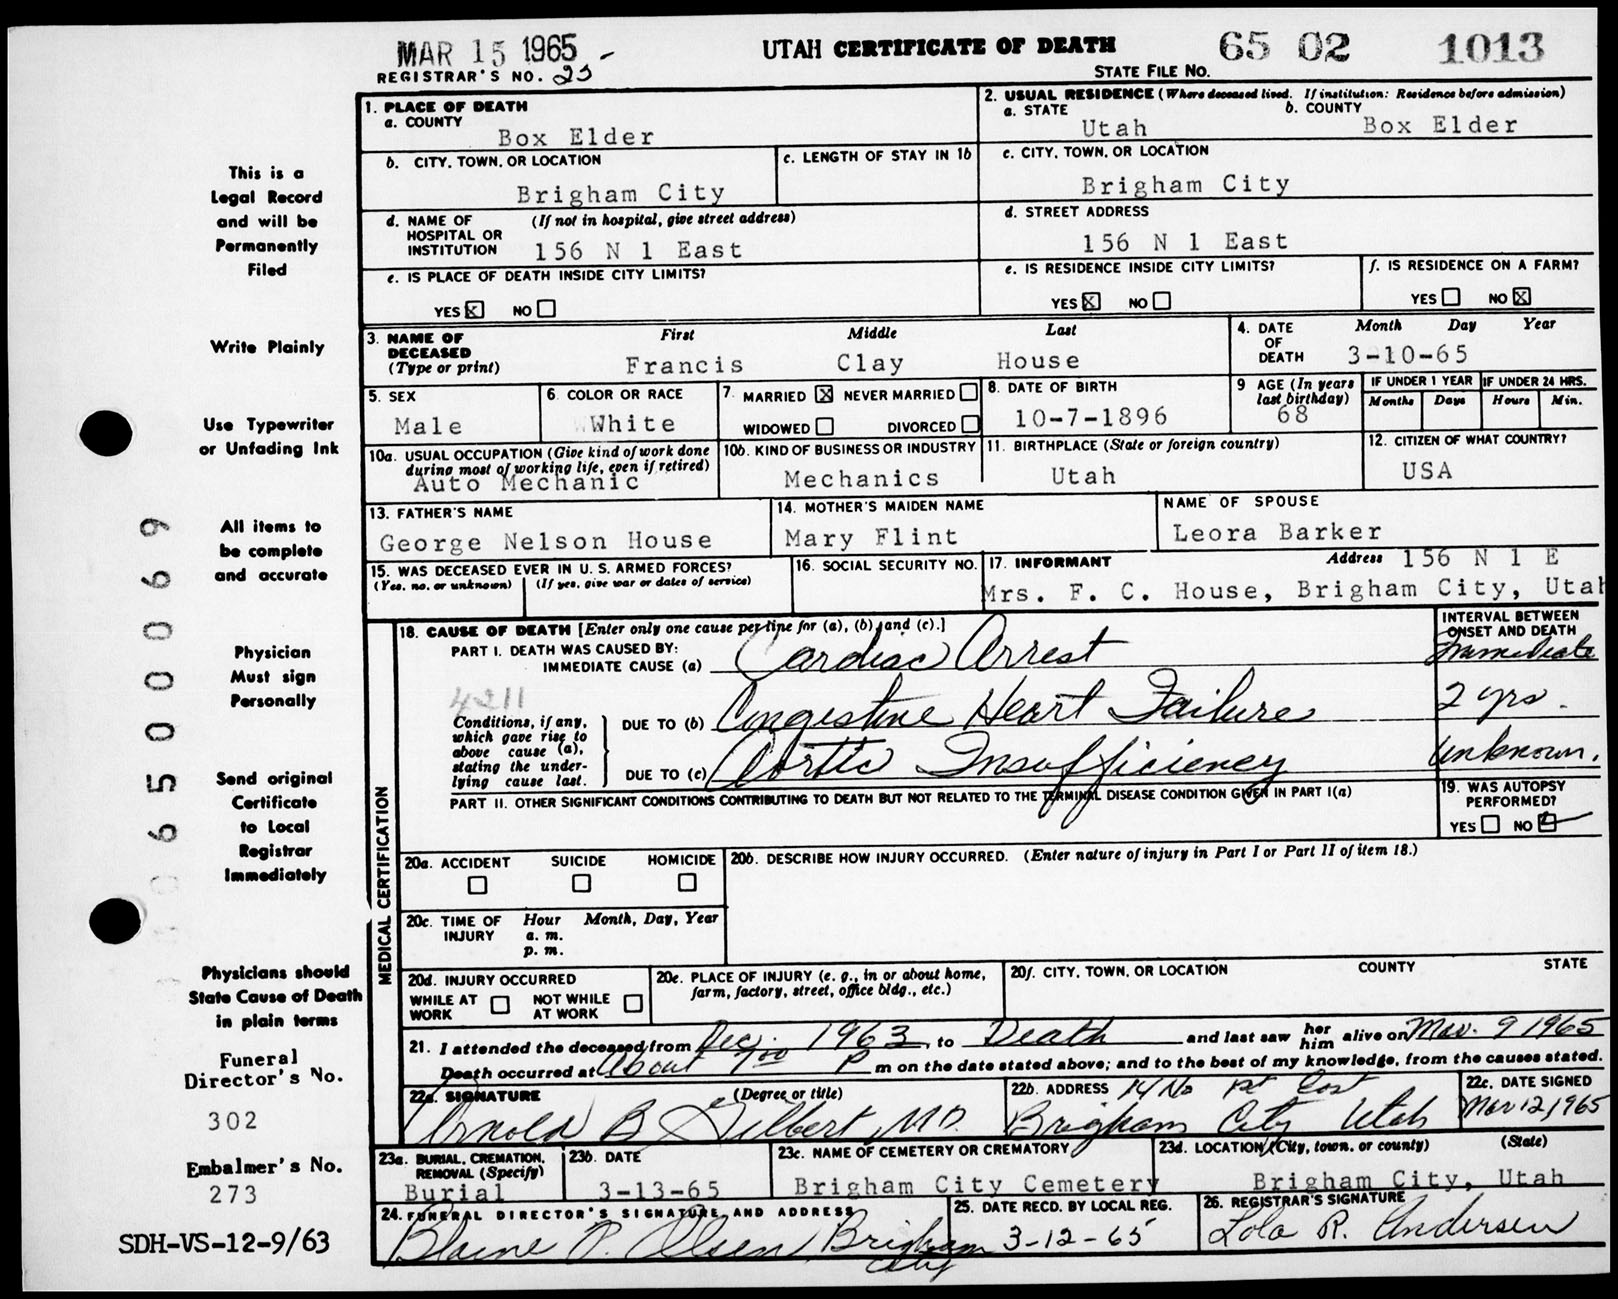 MAR 15 1965
UTAH CERTIFICATE OF DEATH
65 02 1013
REGISTRAR'S NO. 25
STATE FILE NO.
This is a
Legal Record
and will be
Permanently
Filed
Write Plainly
Use Typewriter
or Unfading Ink
All items to
be complete
and accurate
Physician
Must sign
Personally
Send original
Certificate
to Local
Registrar
Immediately
Physicians should
State Cause of Death
in plain terms
Funeral
Director's No.
302
Embalmer's No.
273
SDH-VS-12-9/63
6500069
1. PLACE OF DEATH
a. COUNTY
Box Elder
2. USUAL RESIDENCE (Where deceased lived. If institution: Residence before admission)
a. STATE
Utah
b. COUNTY
Box Elder
b. CITY, TOWN, OR LOCATION
Brigham City
c. LENGTH OF STAY IN 1b
c. CITY, TOWN, OR LOCATION
Brigham City
d. NAME OF HOSPITAL OR INSTITUTION (If not in hospital, give street address)
156 N 1 East
d. STREET ADDRESS
156 N 1 East
e. IS PLACE OF DEATH INSIDE CITY LIMITS?
YES X NO
e. IS RESIDENCE INSIDE CITY LIMITS?
YES X NO
f. IS RESIDENCE ON A FARM?
YES NO X
3. NAME OF DECEASED (Type or print)
First Middle Last
Francis Clay House
4. DATE OF DEATH
Month Day Year
3-10-65
5. SEX
Male
6. COLOR OR RACE
White
7. MARRIED X NEVER MARRIED
WIDOWED DIVORCED
8. DATE OF BIRTH
10-7-1896
9 AGE (In years last birthday)
68
IF UNDER 1 YEAR
Months Days
IF UNDER 24 HRS.
Hours Min.
10a. USUAL OCCUPATION (Give kind of work done during most of working life, even if retired)
Auto Mechanic
10b. KIND OF BUSINESS OR INDUSTRY
Mechanics
11. BIRTHPLACE (State or foreign country)
Utah
12. CITIZEN OF WHAT COUNTRY?
USA
13. FATHER'S NAME
George Nelson House
14. MOTHER'S MAIDEN NAME
Mary Flint
NAME OF SPOUSE
Leora Barker
15. WAS DECEASED EVER IN U. S. ARMED FORCES?
(Yes, no, or unknown) (If yes, give war or dates of service)
16. SOCIAL SECURITY NO.
17. INFORMANT Address 156 N 1 E
Mrs. F. C. House, Brigham City, Utah
MEDICAL CERTIFICATION
18. CAUSE OF DEATH [Enter only one cause per line for (a), (b), and (c).]
INTERVAL BETWEEN ONSET AND DEATH
PART I. DEATH WAS CAUSED BY:
IMMEDIATE CAUSE (a) Cardiac Arrest Immediate
4211
Conditions, if any, which gave rise to above cause (a), stating the underlying cause last.
DUE TO (b) Congestive Heart Failure 2 yrs.
DUE TO (c) Aortic Insufficiency Unknown.
PART II. OTHER SIGNIFICANT CONDITIONS CONTRIBUTING TO DEATH BUT NOT RELATED TO THE TERMINAL DISEASE CONDITION GIVEN IN PART I(a)
19. WAS AUTOPSY PERFORMED?
YES NO
20a. ACCIDENT SUICIDE HOMICIDE
20b. DESCRIBE HOW INJURY OCCURRED. (Enter nature of injury in Part I or Part II of item 18.)
20c. TIME OF INJURY
Hour Month, Day, Year
a. m.
p. m.
20d. INJURY OCCURRED
WHILE AT WORK NOT WHILE AT WORK
20e. PLACE OF INJURY (e. g., in or about home, farm, factory, street, office bldg., etc.)
20f. CITY, TOWN, OR LOCATION COUNTY STATE
21. I attended the deceased from Dec. 1963, to Death and last saw her him alive on Mar. 9 1965
Death occurred at About 7:00 P m on the date stated above; and to the best of my knowledge, from the causes stated.
22a. SIGNATURE (Degree or title)
Arnold B Gilbert, M.D.
22b. ADDRESS 14 No 1st East
Brigham City Utah
22c. DATE SIGNED
Mar 12, 1965
23a. BURIAL, CREMATION, REMOVAL (Specify)
Burial
23b. DATE
3-13-65
23c. NAME OF CEMETERY OR CREMATORY
Brigham City Cemetery
23d. LOCATION (City, town, or county) (State)
Brigham City, Utah
24. FUNERAL DIRECTOR'S SIGNATURE AND ADDRESS
Blaine P. Olsen Brigham City
25. DATE RECD. BY LOCAL REG.
3-12-65
26. REGISTRAR'S SIGNATURE
Lola R. Andersen